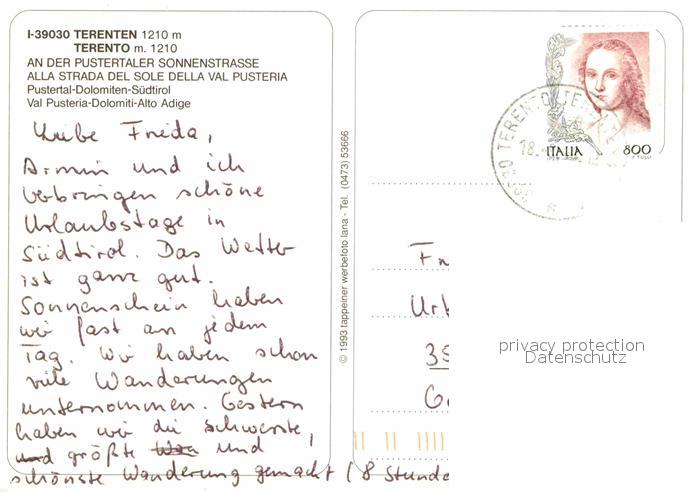 I-39030 TERENTEN 1210 m
TERENTO m. 1210
AN DER PUSTERTALER SONNENSTRASSE
ALLA STRADA DEL SOLE DELLA VAL PUSTERIA
Pustertal-Dolomiten-Südtirol
Val Pusteria-Dolomiti-Alto Adige
Liebe Frieda,
Armin und ich
verbringen schöne
Urlaubstage in
Südtirol. Das Wetter
ist ganz gut.
Sonnenschein haben
wir fast an jedem
Tag. Wir haben schon
viele Wanderungen
unternommen. Gestern
haben wir die schwerste,
größte und
schönste Wanderung gemacht (8 Stunde
© 1993 tappeiner werbefoto lana - Tel. (0473) 53666
TERENTO TERENTEN
18.
ITALIA 800
Fr
Urb
35
Ge
privacy protection
Datenschutz